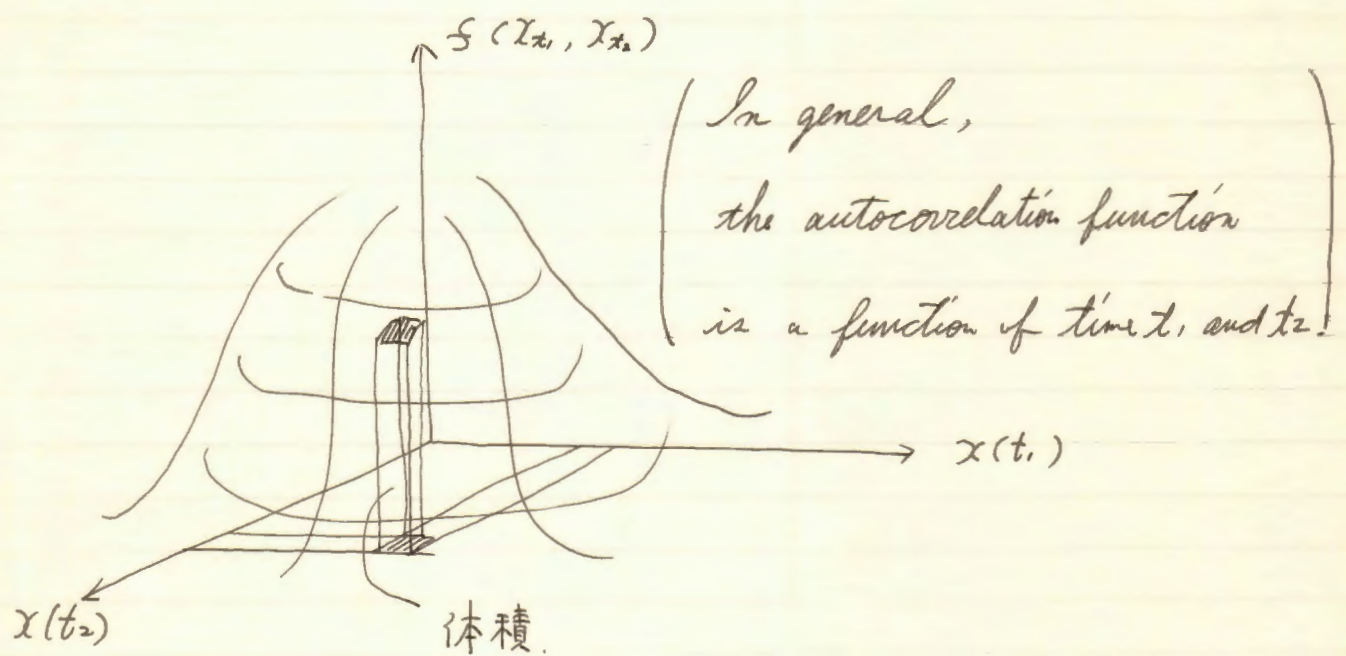 f(x_{t₁}, x_{t₂})
In general,
the autocorrelation function
is a function of time t₁ and t₂.
x(t₁)
x(t₂)
体積.